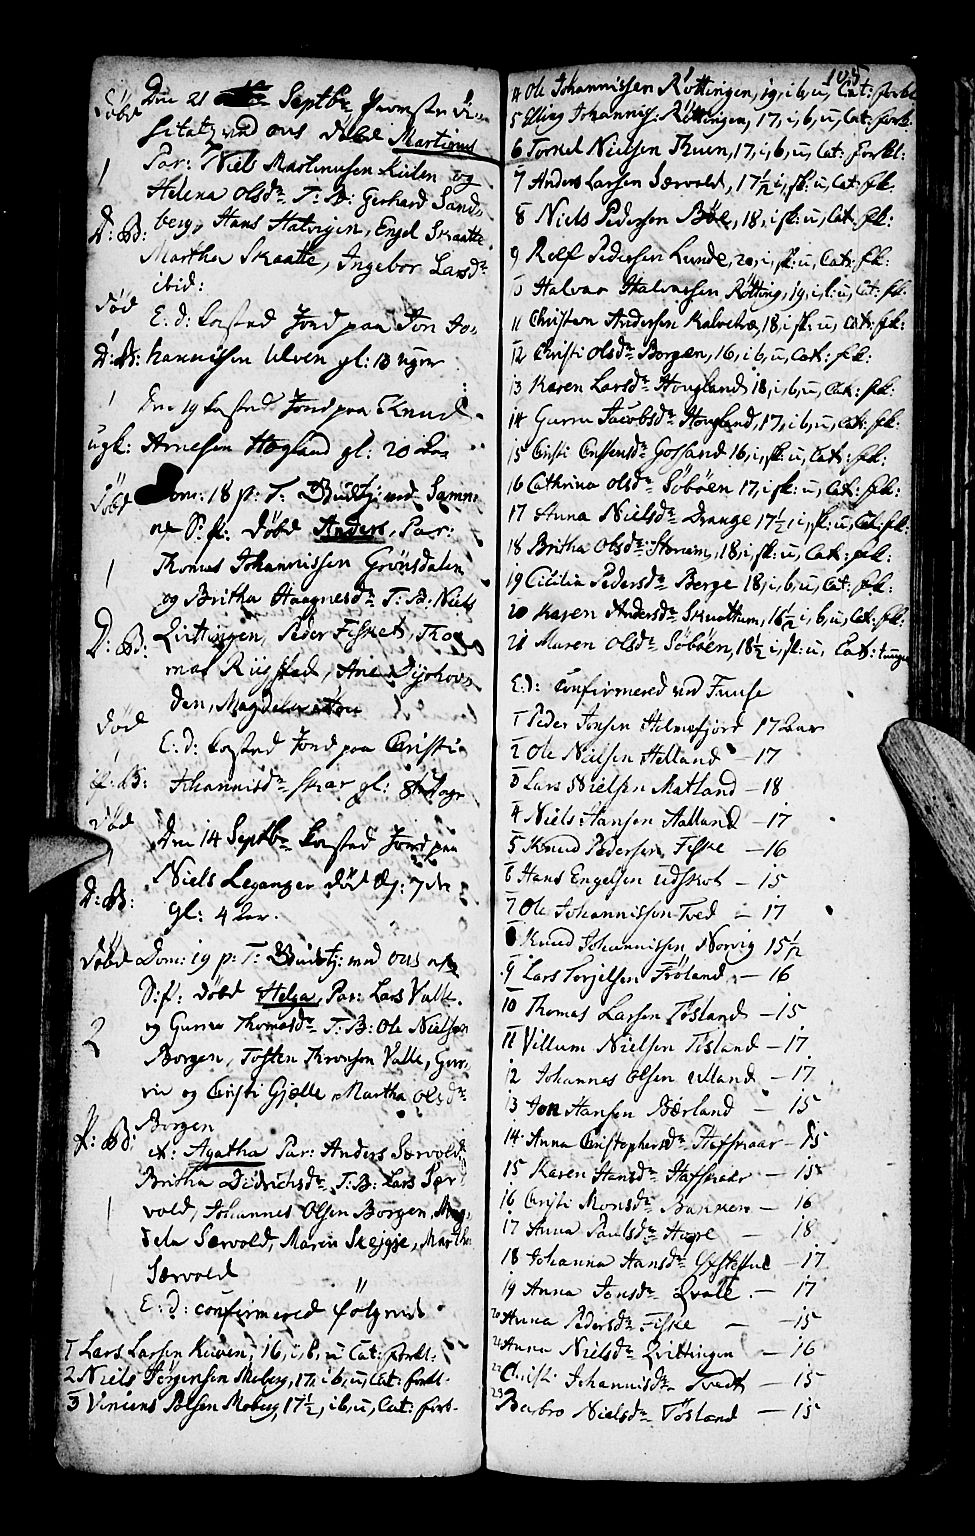 Døbd Den 21 Septb.
sitatz ved ous døbd Martinus
1 Par: Niels Martinussen Kuven og
Helena Olsdr. T: B: Gerhard Sand-
D: B: berg, Hans Halvigen, Engel Skaatte
Martha Skaatte, Ingebor Larsdr.
ibid:
Død E: d: kasted Jord paa Jon Jo-
D: B: hannissen Ulven gl: 13 uger
1 Den 19 kasted Jord paa Knud
ugk: Arnesen Hogland gl: 20 Aar
Døbt Dom: 18 p: T: Budtj: med Samm:
af S: f: døbd Anders, Par:
1 Thomas Johannissen Grönsdalen
og Britha Haagnesdr. T: B: Niels
D: B: Qvittingen, Peder Fisket, Tho-
mas Riisstad, Ane Dyrhov-
den, Magdela
Død E: d: kasted Jord paa Christi
B: Johannisdr. Skar gl: 8 Dage
Død Den 14 Septb. kasted Jord paa
1 Niels Leganger død Æj: 7 de
D: B: gl: 4 Aar.
Døbd Dom: 19 p: T: Budtj: med ous af
S: f: døbd Helga, Par: Lars Valle
2 og Gurra Thomasdr. T: B: Ole Nielsen
Borgen, Tosten Thronsen Valle, Gur-
rie og Christi Gjelle Martha Olsdr.
B: Borgen
it: Agatha Par: Anders Særvold
Britha Didrichsdr. T: B: Lars Sær-
1 vold, Johannes Olsen Borgen, Mag-
dela Særvold, Maren Skejgse, Martha
Særvold
E: d: confirmered følgende
1 Lars Larsen Kuven, 16, i, b, u Cat: forkl:
2 Niels Jørgensen Moberg, 17, i b, u, Cat: forkl-
3 Vincens Polsen Moberg, 17½, i b, u, Cat: fork-
105
4 Ole Johannissen Röttingen, 19, i b, u, Cat: forkl
5 Elling Johanniss: Röttingen, 17, i, b, u, Cat: fork:
6 Torkel Nielsen Thuen, 17, i, b, u, Cat: forkl:
7 Anders Larsen Særvold, 17½ i, sk: u, Cat: fk:
8 Niels Pedersen Böe, 18, i sk: u, Cat: fk:
9 Rolf Pedersen Lunde, 20, i, sk: u, Cat: fk:
10 Halvor Halvorsen Rötting, 19, i, b: u, Cat: fk:
11 Christen Andersen Kalvetræ, 18, i sk: u, Cat: fk:
12 Christi Olsdr. Borgen, 16, i b, u, Cat: fk:
13 Karen Larsdr. Hougland 18, i, b, u, Cat: fk:
14 Gurru Jacobsdr. Hougland, 17, i b, u, Cat: fk:
15 Christi Gossand 16, i, sk: u, Cat: fk:
16 Cathrina Olsdr. Söböen 17, i sk: u, Cat: fk:
17 Anna Nielsdr. Drange 17½ i, sk: u, Cat: fk:
18 Britha Olsdr. Storum, 18, i sk: u, Cat: fk:
19 Cicilia Pedersdr. Berge 18, i, b, u, Cat: fk:
20 Karen Andersdr. Skuottum, 16½ i, b, u, Cat: fk:
21 Maren Olsdr. Söböen, 18½ i, sk: u, Cat:
E: d: confirmered ved Fuuse
1 Peder Jonsen Helmefjord 17 Aar
2 Ole Nielsen Helland - 17
3 Lars Nielsen Matland - 18
4 Niels Hansen Aalland - 17
5 Knud Pedersen Fiske - 16
6 Hans Engelsen Udskot - 15
7 Ole Johannissen Tved - 17
8 Knud Johannissen Norvig 15½
9 Lars Torjelsen Fröland - 16
10 Thomas Larsen Tösland - 15
11 Villum Nielsen Tisland - 17
12 Johannes Olsen Ulland - 17
13 Jon Hansen Bærland - 15
14 Anna Christophersdr. Hafskaar - 15
15 Karen Hansdr. Hafskaar - 15
16 Christi Monsdr. Bakken - 16
17 Anna Paulsdr. Hope - 18
18 Johanna Hansdr. - 17
19 Anna Jonsdr. Qvale - 17
20 Anna Pedersdr. Fiske - 15
21 Anna Nielsdr. Qvittingen - 16
22 Christi Johannisdr. Tvedt - 15
23 Barbro Nielsdr. Tösland - 15